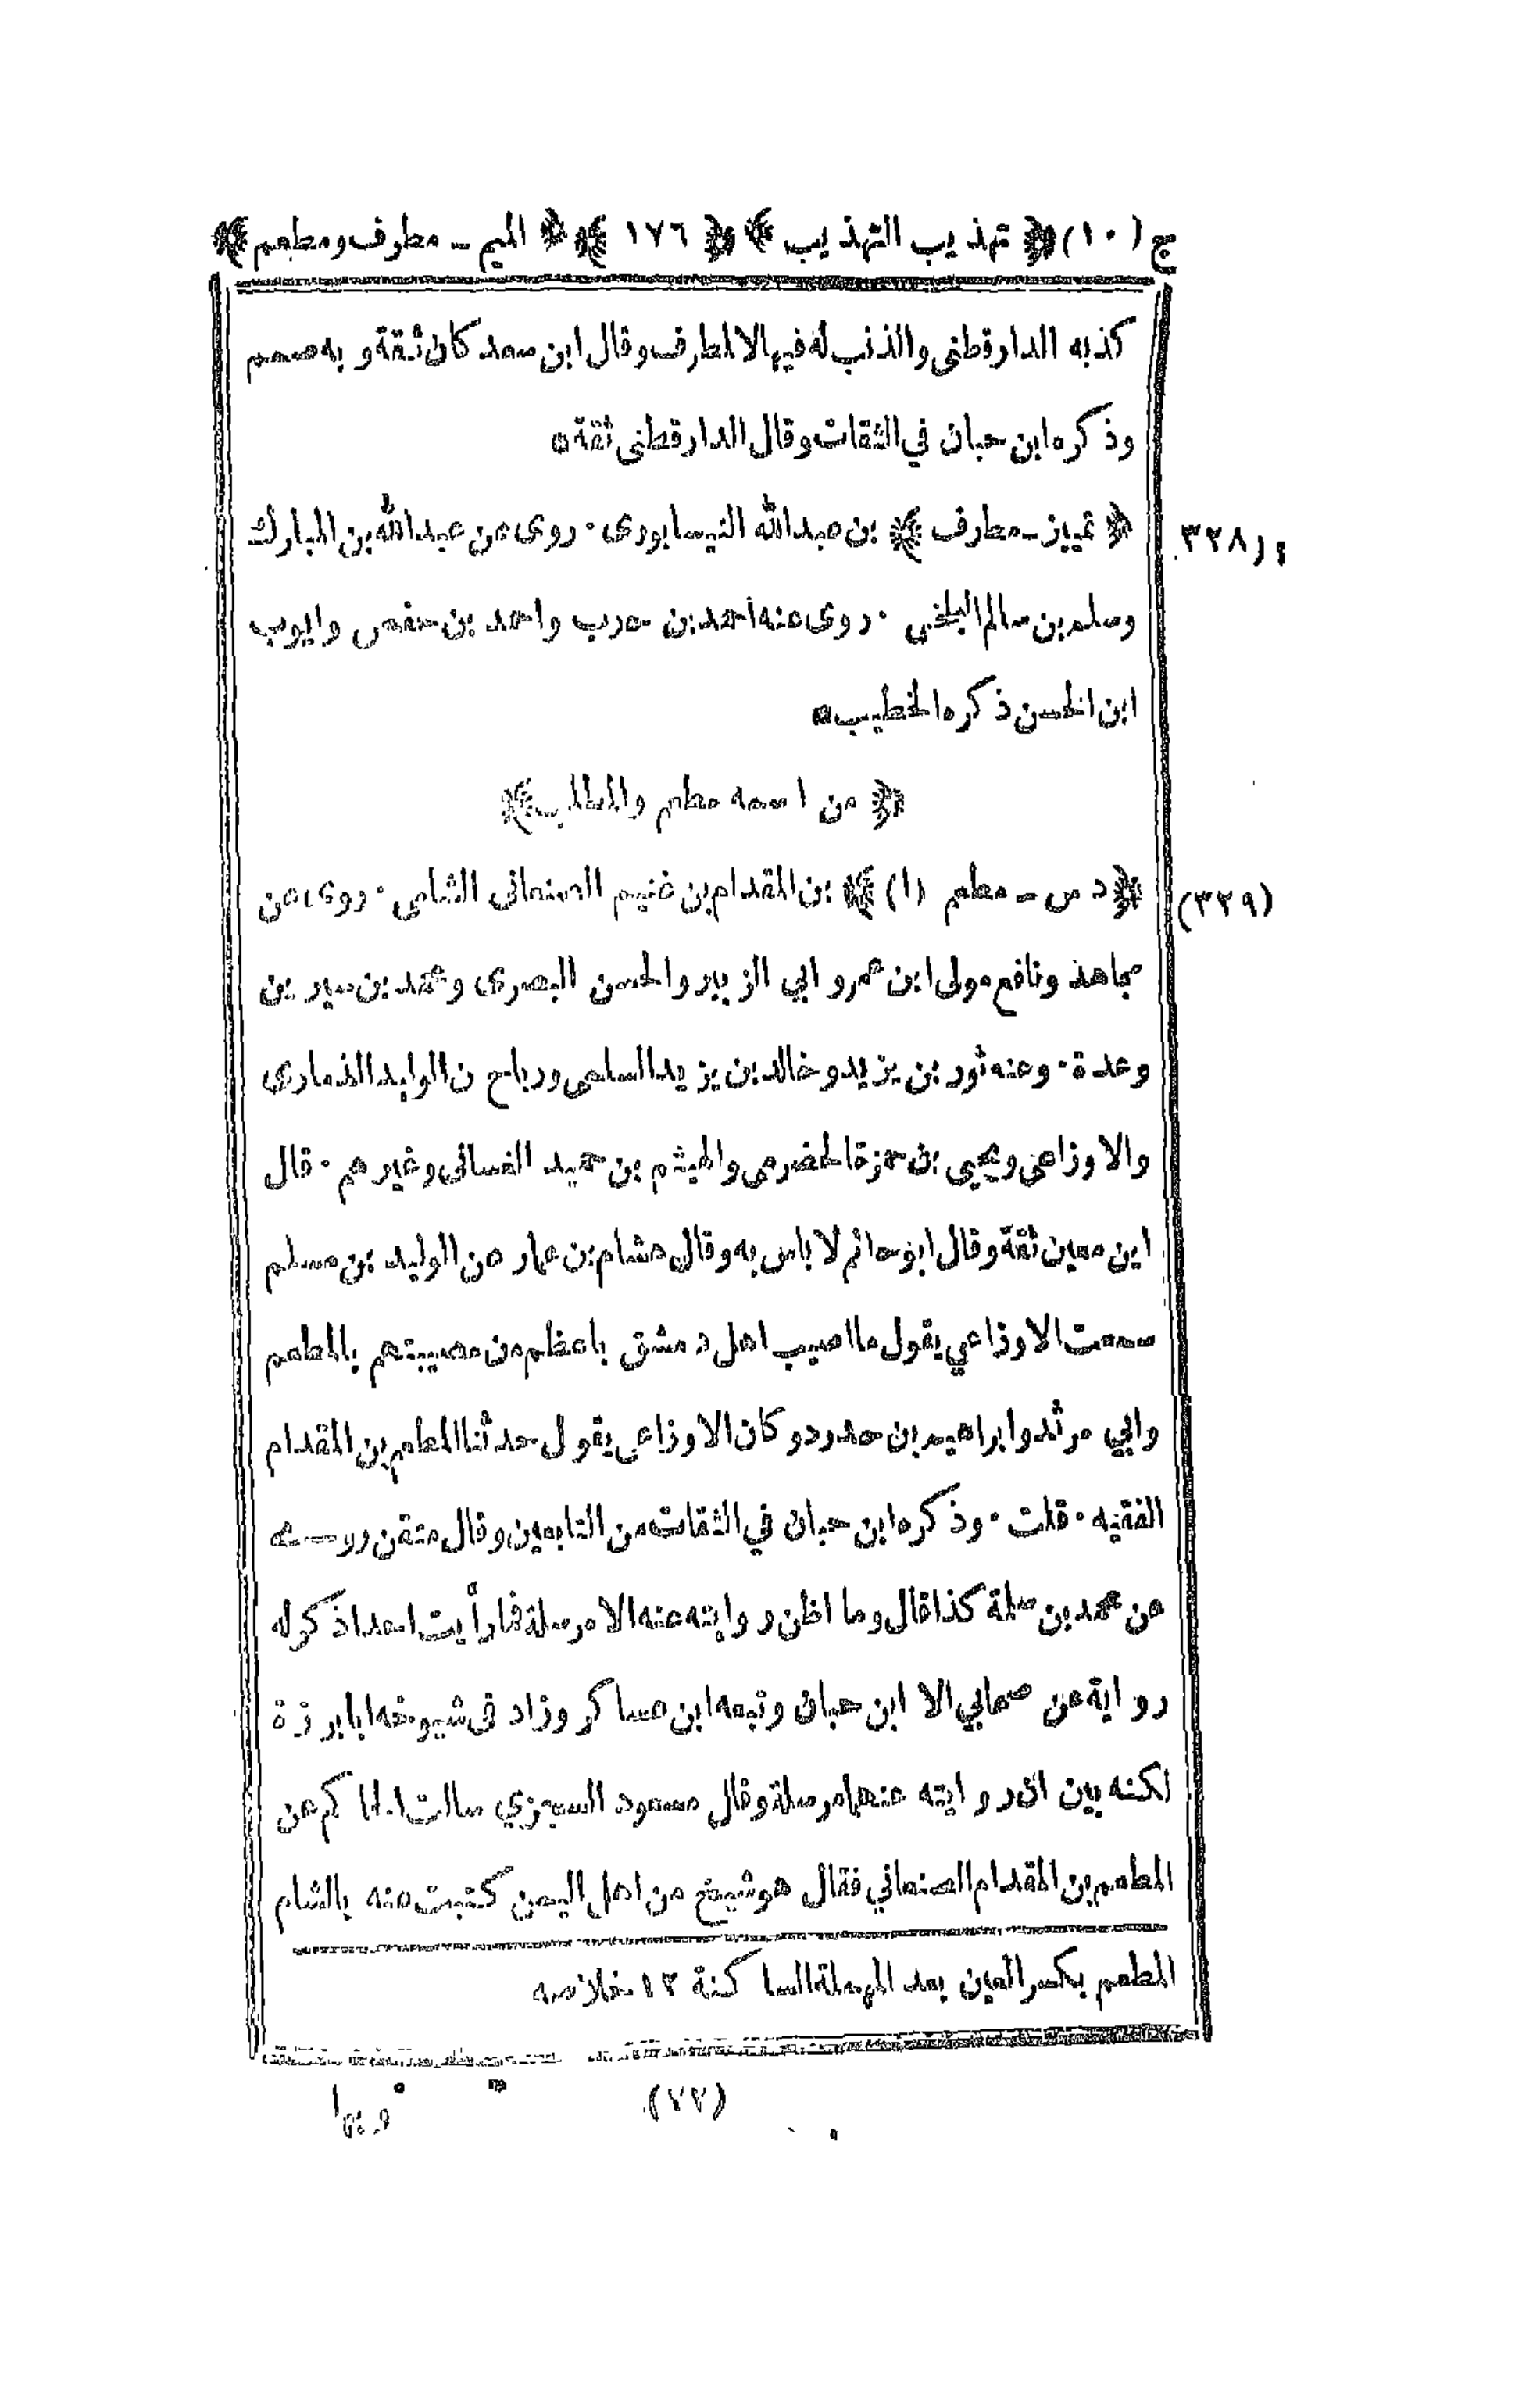 ج (١٠) ﴿ تهذيب التهذيب ﴾ ﴿ ١٧٦ ﴾ ﴿ الميم ـ مطرف ومطعم ﴾
كذبه الدارقطنى والذنب له فيها لا لمطرف وقال ابن سعد كان ثقة و به صمم
وذكره ابن حبان في الثقات وقال الدارقطنى ثقة ه
﴿ تمييز ـ مطرف ﴾ بن عبدالله النيسابورى · روى عن عبدالله بن المبارك
٣٢٨
وسلم بن سالم البلخى · روى عنه احمد بن حرب واحمد بن حفص وايوب
ابن الحسن ذكره الخطيب ه
﴿ من اسمه مطعم والمطلب ﴾
﴿ د س ـ مطعم (١) ﴾ بن المقدام بن غنيم الصنعانى الشامى · روى عن
(٣٢٩)
مجاهد ونافع مولى ابن عمر وابي الزبير والحسن البصرى ومحمد بن سيرين
وعدة · وعنه ثور بن يزيد وخالد بن يزيد السلمى ورباح بن الوليد الذمارى
والاوزاعى ويحيى بن حمزة الحضرمى والهيثم بن حميد الغسانى وغيرهم · قال
ابن معين ثقة وقال ابو حاتم لا باس به وقال هشام بن عمار عن الوليد بن مسلم
سمعت الاوزاعي يقول ما اصيب اهل دمشق باعظم من مصيبتهم بالمطعم
وابي مرثد وابراهيم بن حدرد وكان الاوزاعى يقول حدثنا المطعم بن المقدام
الفقيه · قلت · وذكره ابن حبان في الثقات من التابعين وقال متقن
عن محمد بن سلمة كذا قال وما اظن روايته عنه الا مرسلة فما رأيت احدا ذكر له
رواية عن صحابي الا ابن حبان وتبعه ابن عساكر وزاد فى شيوخه ابا برزة
لكنه بين ان روايته عنهما مرسلة وقال مسعود السجزي سالت الحاكم عن
المطعم بن المقدام الصنعاني فقال هو شيخ من اهل اليمن كتبت عنه بالشام
المطعم بكسر العين بعد المهملة الساكنة ١٢ خلاصه
(٢٢)